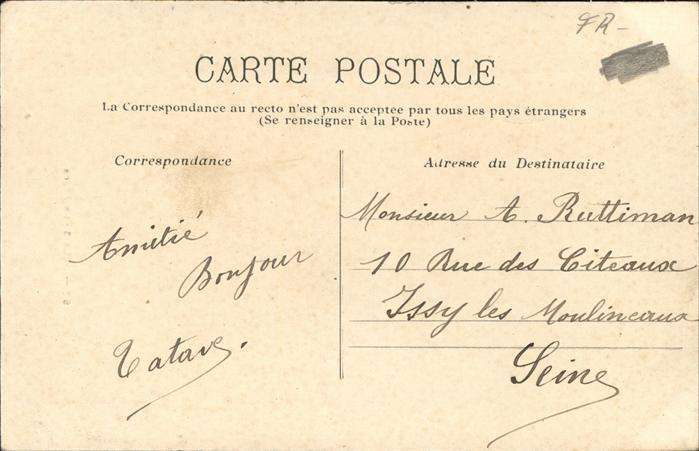 FR-
CARTE POSTALE
La Correspondance au recto n'est pas acceptee par tous les pays étrangers
(Se renseigner à la Poste)
Correspondance
Amitié
Bonjour
Tatave.
Adresse du Destinataire
Monsieur A. Ruttiman
10 Rue des Citeaux
Issy les Moulineaux
Seine